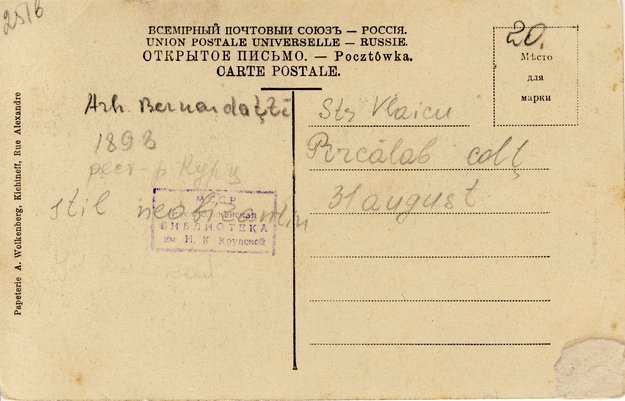 2516
ВСЕМІРНЫЙ ПОЧТОВЫЙ СОЮЗЪ — РОССІЯ.
UNION POSTALE UNIVERSELLE — RUSSIE.
ОТКРЫТОЕ ПИСЬМО. — Pocztówka.
CARTE POSTALE.
20.
Мѣсто
для
марки
Arh. Bernardazzi
1898
stil neobizantin
МССР
БИБЛИОТЕКА
им Н. К Крупской
Str Vlaicu
Pircălab colţ
31 august
Papeterie A. Wolkenberg, Kichineff, Rue Alexandre